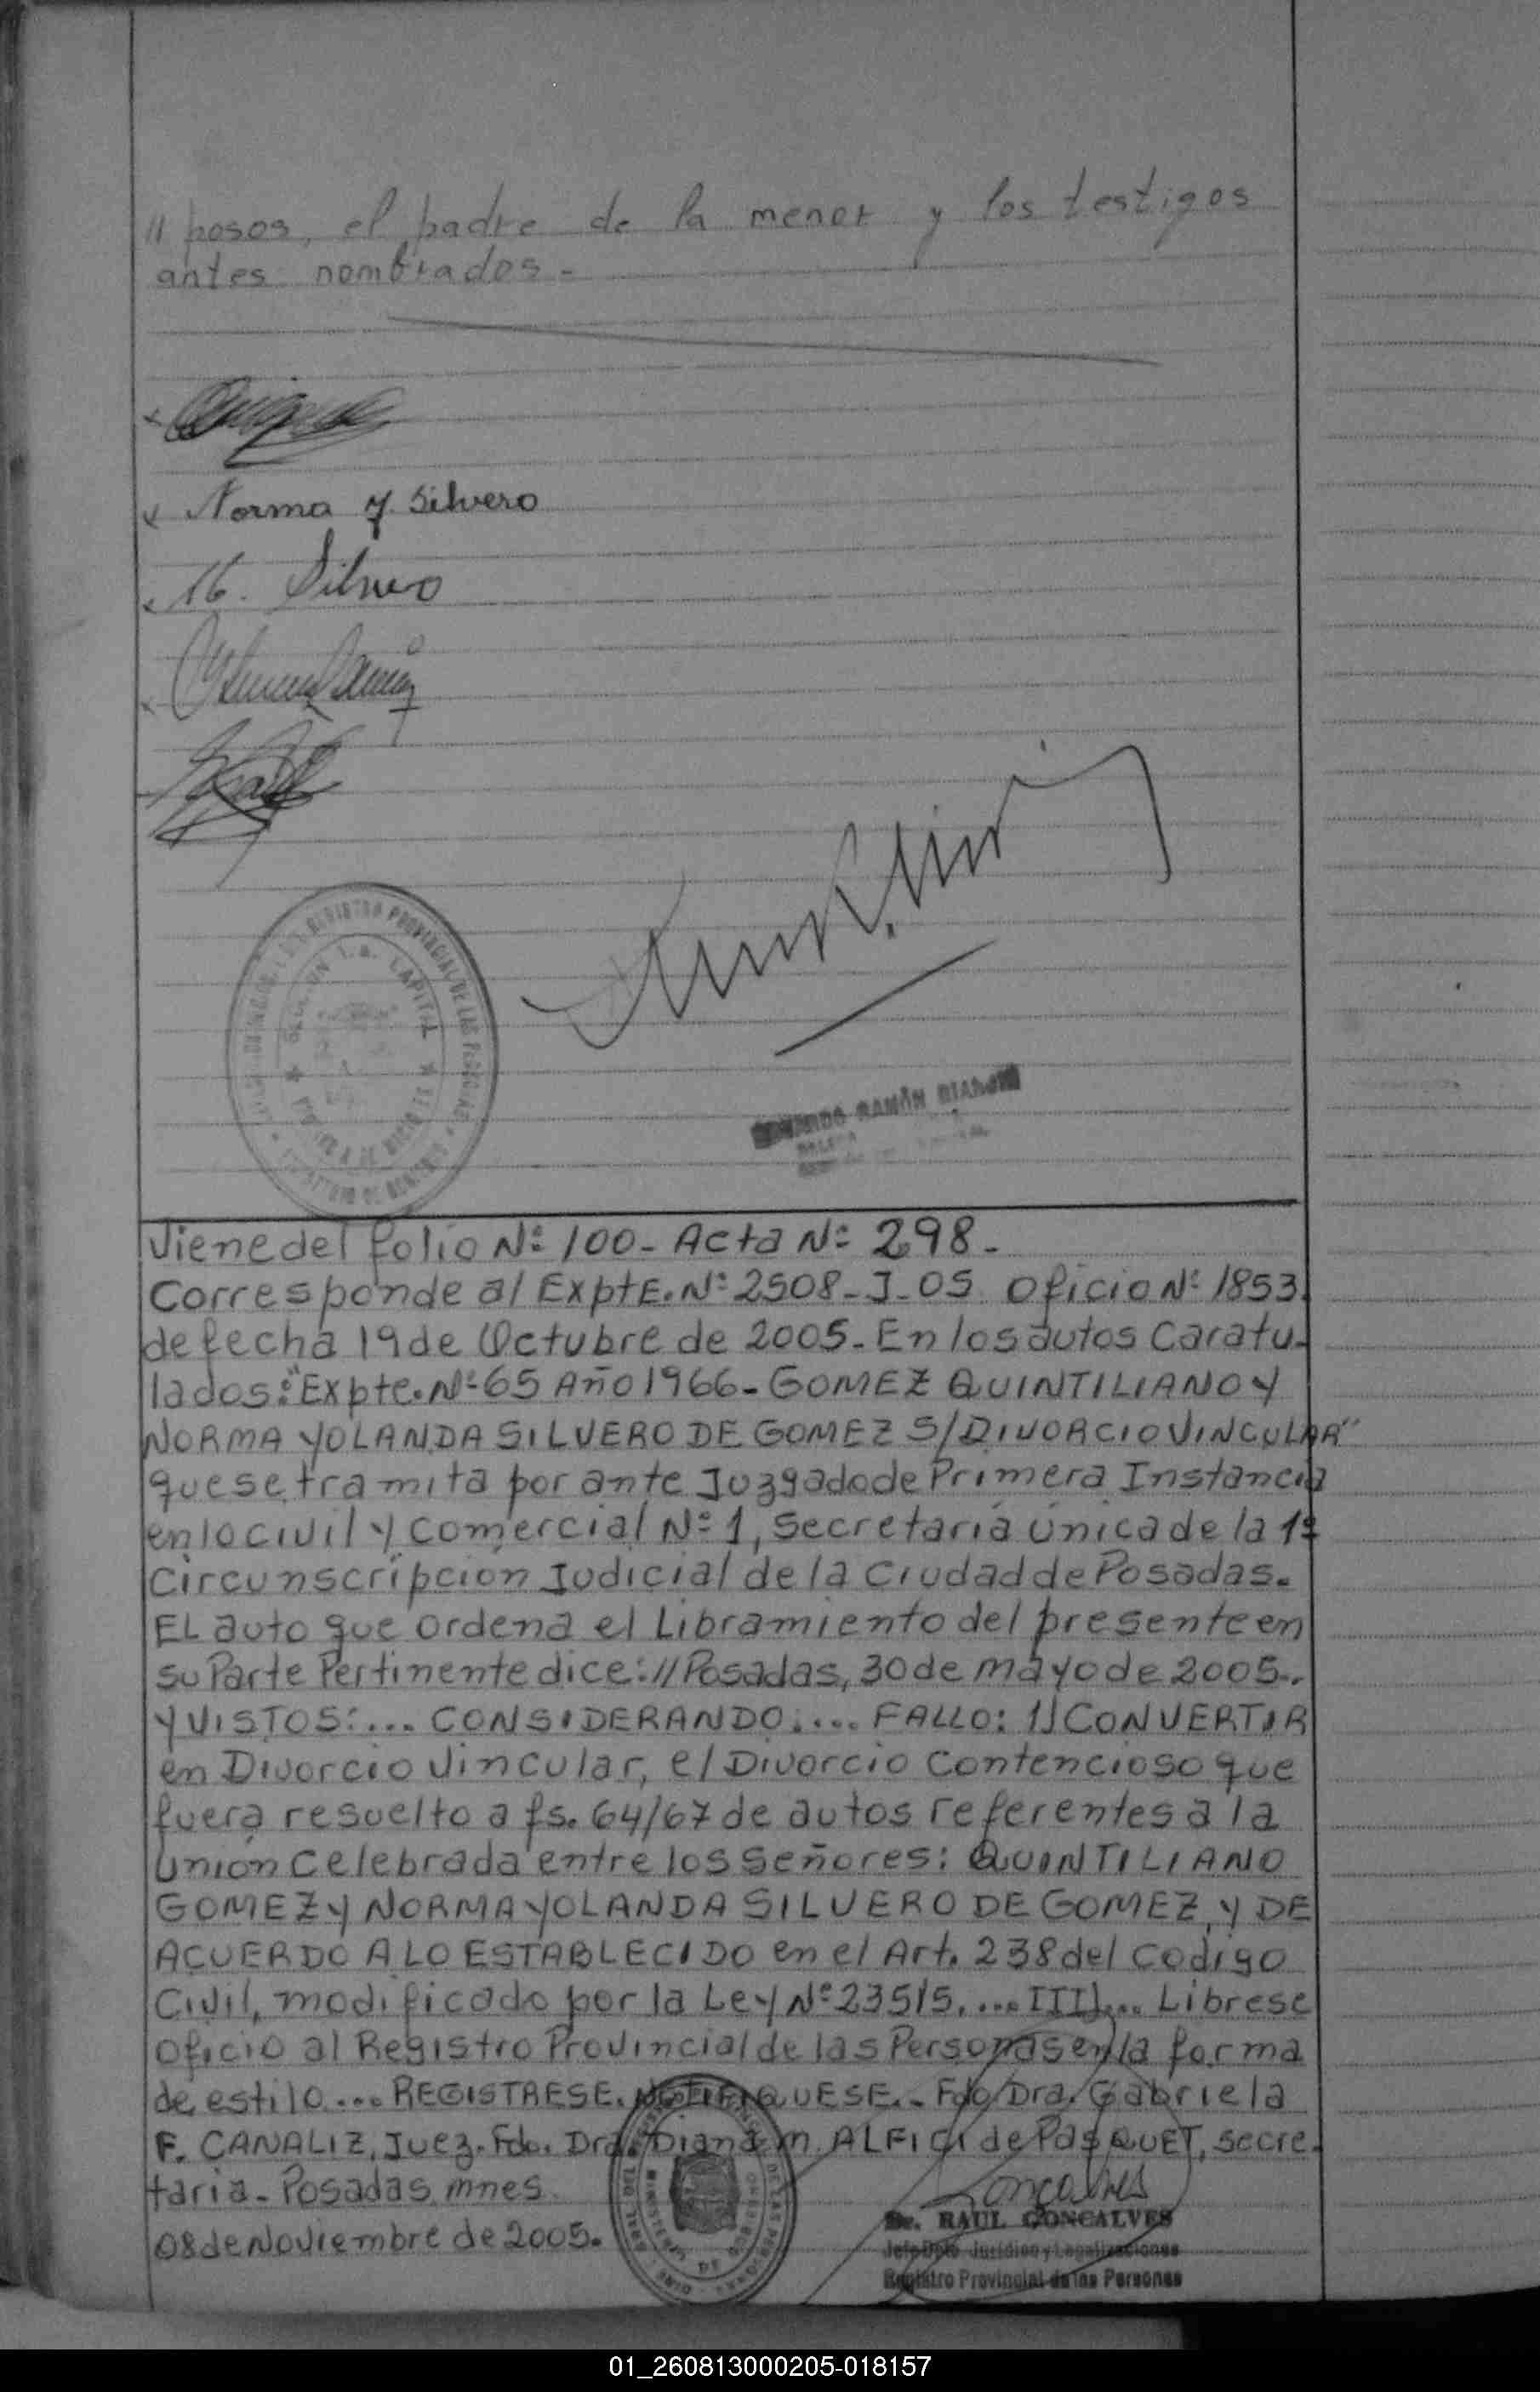 // posos, el padre de la menor y los testigos
antes nombrados.-
Norma Y. Silvero
Silvero
REGISTRO PROVINCIAL DE LAS PERSONAS
CAPITAL
RAMÓN
Viene del folio Nº 100- Acta Nº 298-
Corresponde al ExptE. Nº 2508-J-05 Oficio Nº 1853.
de fecha 19 de Octubre de 2005- En los autos Caratu-
lados: "Expte. Nº 65 Año 1966- GOMEZ QUINTILIANO Y
NORMA YOLANDA SILVERO DE GOMEZ S/DIVORCIO VINCULAR"
que se tramita por ante Juzgado de Primera Instancia
en lo civil y comercial Nº 1, Secretaría única de la 1ª
Circunscripción Judicial de la Ciudad de Posadas.
EL auto que ordena el Libramiento del presente en
su Parte Pertinente dice: // Posadas, 30 de mayo de 2005..
Y VISTOS:... CONSIDERANDO:... FALLO: 1) CONVERTIR
en Divorcio Vincular, el Divorcio Contencioso que
fuera resuelto a fs. 64/67 de autos referentes a la
Unión Celebrada entre los Señores: QUINTILIANO
GOMEZ Y NORMA YOLANDA SILVERO DE GOMEZ, Y DE
ACUERDO A LO ESTABLECIDO en el Art. 238 del Codigo
Civil, modificado por la Ley Nº 23515. ...III)... Librese
Oficio al Registro Provincial de las Personas en la forma
de estilo... REGISTRESE. NOTIFIQUESE.- Fdo/Dra. Gabriela
F. CANALIZ, Juez. Fdo. Dra. Diana M. ALFICI de PASQUET, secre-
taria- Posadas, mnes.
08 de Noviembre de 2005.
Goncalves
Dr. RAUL GONCALVES
Jefe Dpto. Jurídico y Legalizaciones
Registro Provincial de las Personas
MINISTERIO DE
01_260813000205-018157